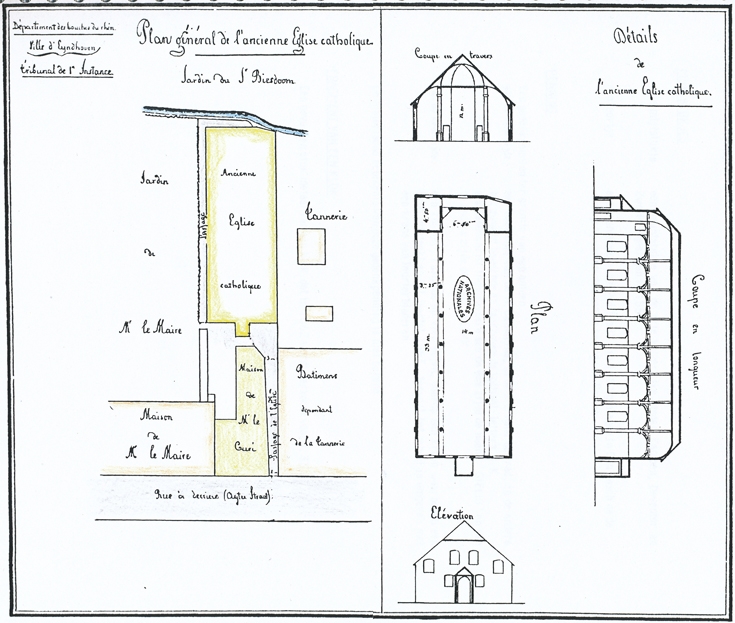 Département des bouches du rhin.
Ville d'Eyndhoven
Tribunal de 1e Instance
Plan général de l'ancienne Eglise catholique
Jardin du Sr Biesdoom
Jardin
de
Mr le Maire
Passage
Ancienne
Eglise
catholique
Tannerie
Maison
de
Mr le Maire
Maison
de
Mr le
Curé
Passage de l'Eglise
Batimens
dependant
de la Tannerie
Rue de derriere (Agter Straat).
Détails
de
l'ancienne Eglise catholique.
Coupe en travers
12 m.
4-50m
6-50m
3-25m
ARCHIVES
NATIONALES
14 m
33 m.
Plan
Coupe en longueur
Elévation